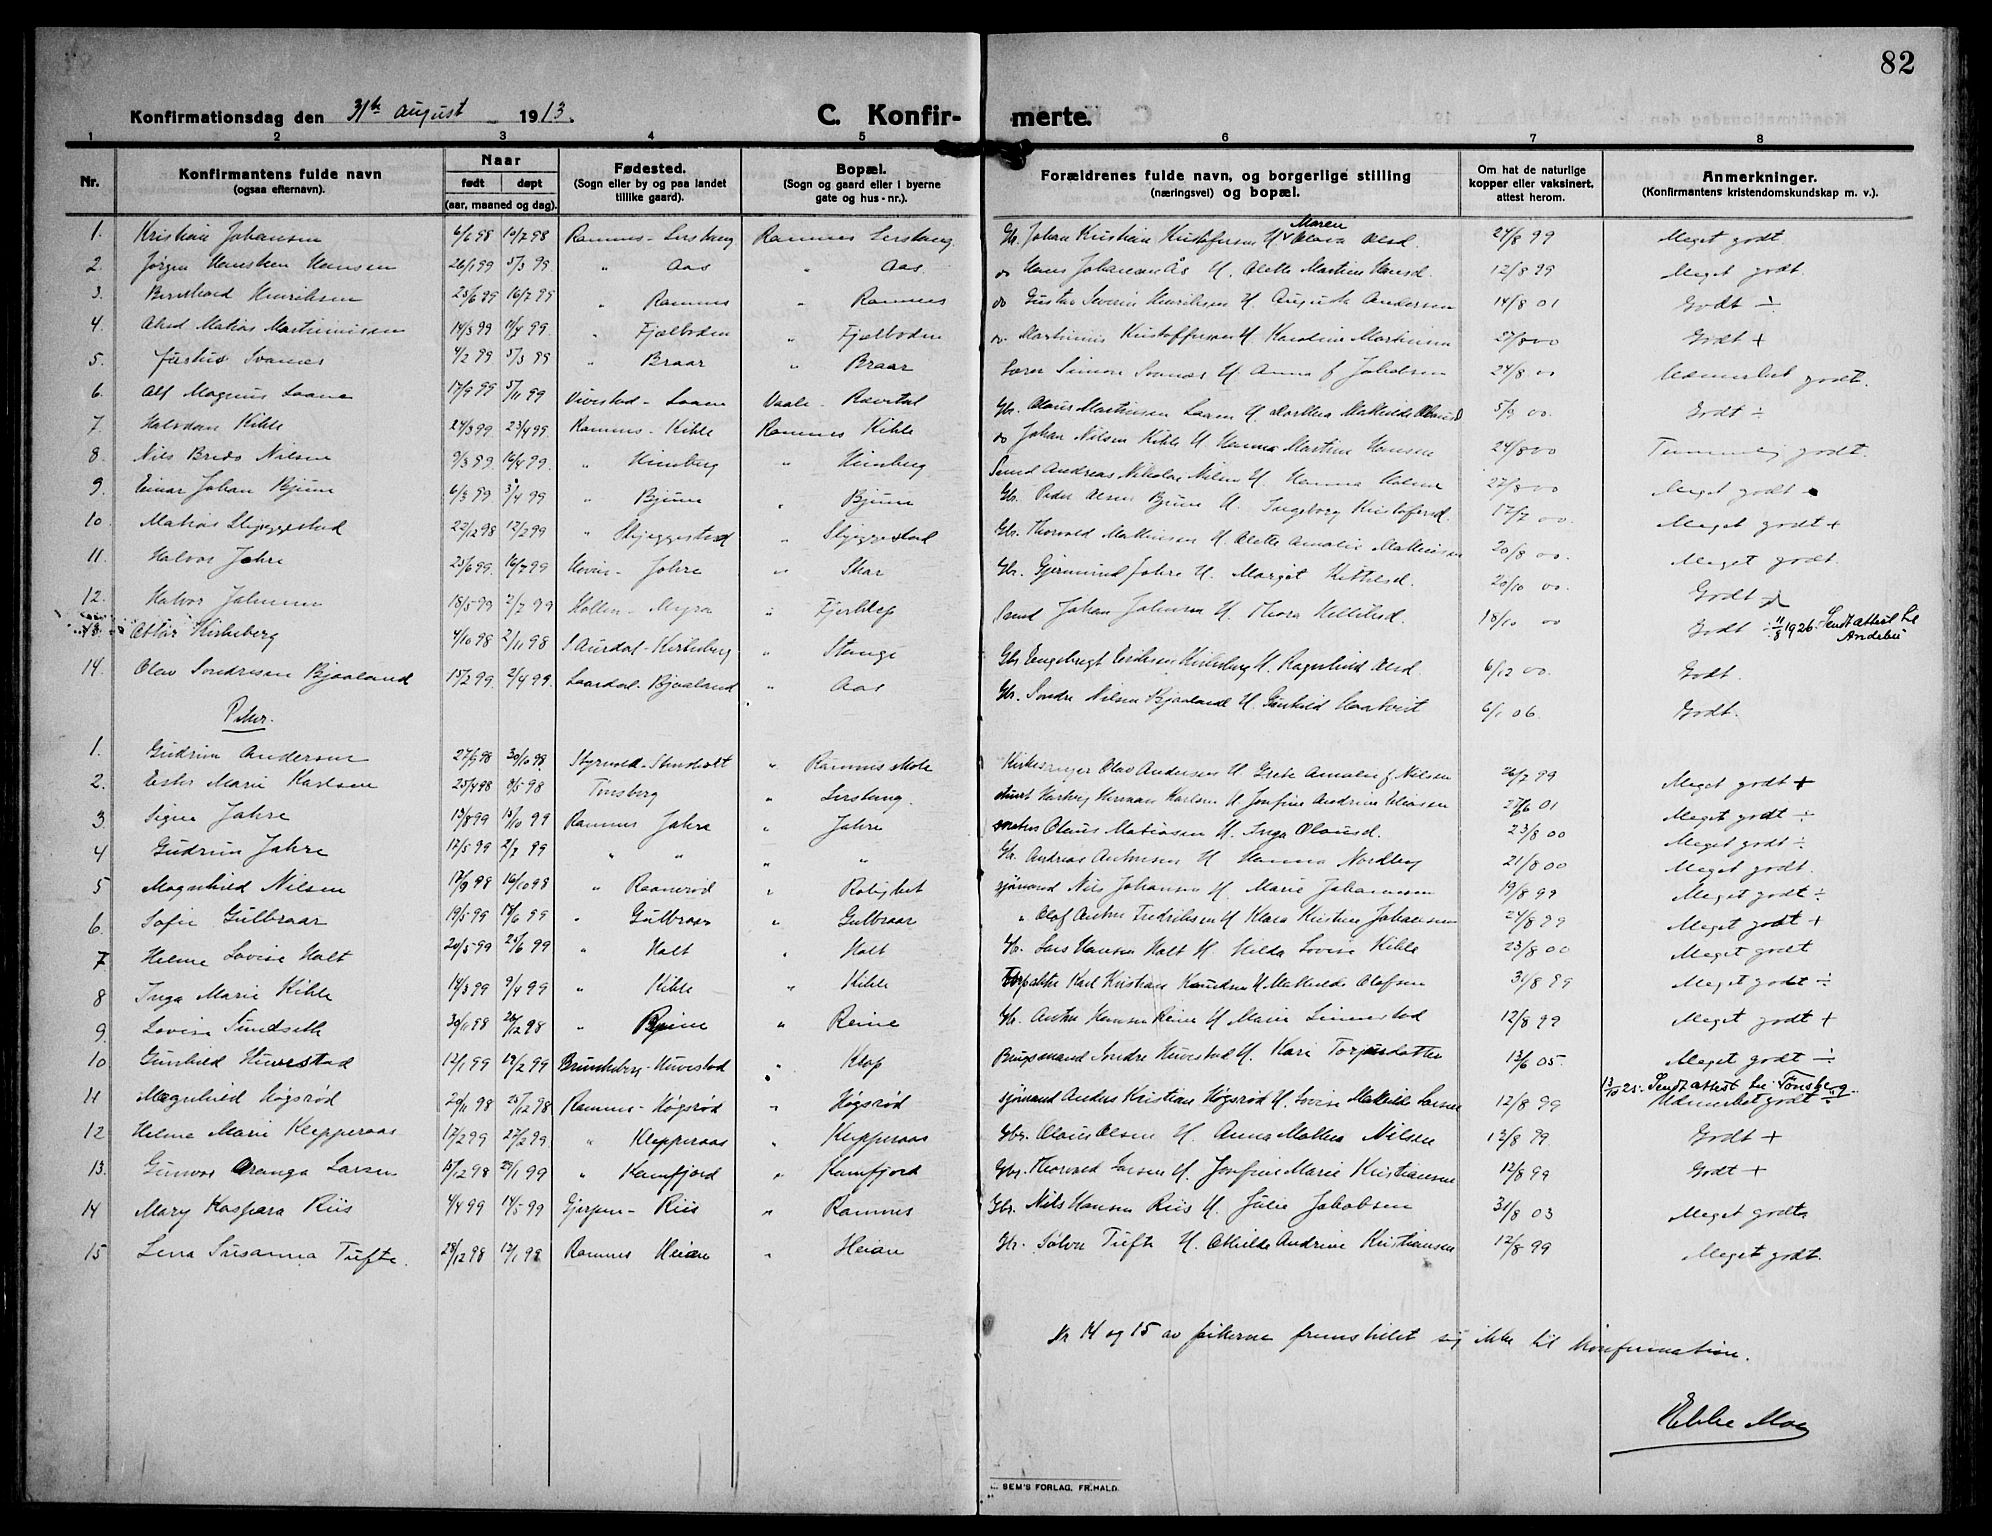 82
Konfirmationsdag den 31te august 1913.
C. Konfirmerte.
1 2 3 4 5 6 7 8
Nr. Konfirmantens fulde navn (ogsaa efternavn). Naar født døpt (aar, maaned og dag). Fødested. (Sogn eller by og paa landet tillike gaard). Bopæl. (Sogn og gaard eller i byerne gate og hus-nr.). Forældrenes fulde navn, og borgerlige stilling (næringsvei) og bopæl. Om hat de naturlige kopper eller vaksinert. attest herom. Anmerkninger. (Konfirmantens kristendomskundskap m. v.).
1. Kristian Johansen 6/6 98 10/7 98 Ramnes - Lerskang Ramnes Lerskang Gbr. Johan Kristian Kristofersen H v Maren Olava Olsd. 24/8 99 Meget godt
2. Jørgen Hansteen Hansen 26/1 99 5/3 99 " Aas " Aas. do Hans Johannesen Ås H. Alette Martine Hansd. 12/8 99 Meget godt
3. Bernhard Henriksen 23/6 99 16/7 99 " Ramnes " Ramnes do Gustav Severin Henriksen H. Augusta Andersen 14/8 01 Godt ÷
4. Matias Martinnisen 14/3 99 9/4 99 " Fjælboden " Fjælboden do Martinius Kristoffersen H Karoline Martinsen 27/8 00 Godt +
5. Justus Svanes 4/2 99 5/3 99 " Braar " Braar Lærer Simon Svanes H Anna f Jakobsen 24/8 00 Udmerket godt.
6. Alf Magnus Laane 17/9 99 5/11 99 Vivestad - Laane Vaale - Revetal Gbr. Olaus Martinsen Laane H Marthea Mathilde 5/9 00. Godt ÷
7. Halvdan Kihle 24/3 99 23/4 99. Ramnes - Kihle Ramnes Kihle do Johan Nilsen Kihle H Hanna Martine Hansen 24/8 00 Temmelig godt.
8. Nils Bredo Nilsen 9/3 89 16/4 99. " Himberg " Himberg Smed Andreas Nikolai Nilsen H Hanna 27/8 00 Meget godt
9. Einar Johan Bjune 6/3 99 3/4 99 " Bjune " Bjune Gbr. Peder Olsen Bjune H. Ingeborg Kristofersd. 17/7 00. Meget godt +
10. Matias Skjeggestad 22/12 98 12/2 99 " Skjeggestad " Skjeggestad Gbr. Thorvald Mathisen H. Alette Amalie Mathisen 20/8 00. Meget godt.
11. Halvor Jahre 23/6 99. 16/7 99 Hevin - Jahre " Skar Gbr. Gjermund Jahre H. Margit Kittilsd. 20/10 00. Godt
12. Halvor Johnsen 18/5 99 2/7 99 Hollen - Myra " Smed Johan Johnsen H. Thora Kittilsd. 18/10 00 Godt ÷
13. Ottar Kirkeberg 4/10 98 2/11 98 S Aurdal - Kirkeberg " Stange Gbr Engebregt Eriksen Kirkeberg H. Ragnhild Olsd. 6/12 00. Godt. 11/8 1926. Sendt attest til Andebu
14. Olav Sondresen Bjaaland 15/2 99. 2/4 99. Laardal - Bjaaland " Aas Gbr. Sondre Nilsen Bjaaland H. Gunhild 6/1 06. Godt.
Piker.
1. Gudrun Andersen 27/9 98 30/10 98 Styrvold - " Ramnes skole Kirkesanger Olav Andersen H Grete Amalie f Nilsen 26/7 99 Meget godt +
2. Ester Marie Karlsen 25/4 98 8/5 98 Tønsberg " Lerskang. Hartvig Herman Karlsen H Josefine Andrine Eliasen 27/6 01 Meget godt ÷
3. Signe Jahre 13/8 99 15/10 99 Ramnes Jahre " Jahre Olaus Matiasen H. Inga Olausd. 23/8 00 Meget godt ÷
4 Gudrun Jahre 12/5 99 2/7 99 " " " " Gbr. Andreas Antonsen H Hanna Nordby 21/8 00 Meget godt.
5 Magnhild Nilsen 17/9 98 16/10 98 " Raanerød " Rolighet sjømand Nils Johansen H. Marie Johannesen 19/8 99 Meget godt ÷
6. Sofie Gulbraar 19/5 99 18/6 99 " Gulbraar " Gulbraar " Olaf Anton Fredriksen H Klara Kristine Johansen 24/8 99 Meget godt +
7 Helene Lovise Holt 20/5 99 25/6 99 " Holt " Holt Gbr. Lars Hansen Holt H. Hilda Lovise Kihle 23/8 00 Meget godt
8 Inga Marie Kihle 14/3 99 9/4 99 " Kihle " Kihle Forpakter Karl Kristian Knudsen H Mathilde Olafsen 31/8 99 Meget godt ÷
9. Lovise Sundseth 30/1 98 26/12 98 " Reine " Reine Gbr. Anton Hansen Reine H Marie Linnestad 12/8 99 Meget godt +
10 Gunhild Huvestad 12/1 99 19/2 99 Brunkeberg - Huvestad " Klop Brugsmand Sondre Huvestad H. Kari Torjusdatter 13/6 05. Meget godt ÷
11 Magnhild Høgsrød 20/11 98 25/12 98 Ramnes - Høgsrød " Høgsrød sjømand Anders Kristian Høgsrød H. Lovise Mathilde Larsen 12/8 99 13/10 25. Sendt attest til Tønsberg. Udmerket godt ÷
12 Helene Marie Klepperaas 17/2 99 27/2 99. " Klepperaas " Klepperaas Gbr. Olaus Olsen H. Anna Mathea Nilsen 12/8 99 Godt +
13. Gunvor Oranga Larsen 15/12 98 29/1 99 " Kamfjord " Kamfjord Gbr. Thorvald Larsen H. Josefine Marie Kristiansen 12/8 99 Godt +
14 Mary Kaspara Riis 4/4 99 14/5 99 Gjerpen - Riis " Ramnes Gbr. Nils Hansen Riis H. Julie Jakobsen 31/8 03 Meget godt
15 Lena Susanna Tufte. 28/12 98 15/1 99 Ramnes Heian " Heian Gbr. Sølve Tufte H. Othilde Andrine Kristiansen 12/8 99 Meget godt.
Nr 14 og 15 av pikerne fremstillet sig ikke til konfirmation.
Ebbe Moe
SEM'S FORLAG, FR.HALD.